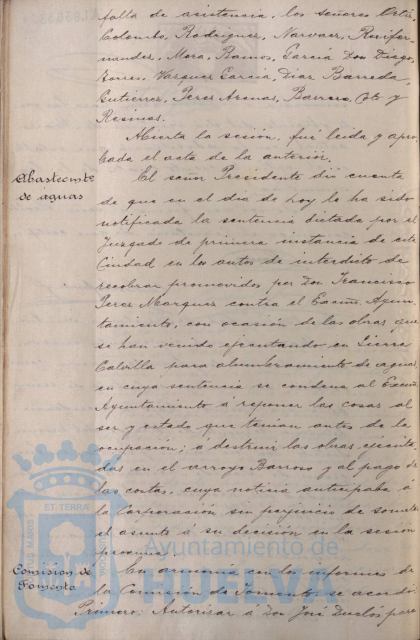 falta de asistencia, los señores Ortiz
Colombo, Rodriguez, Narvaez, Ruifer-
nandez, Mora, Ramos, Garcia Don Diego,
Torres, Vazquez Garcia, Diaz Barreda,
Gutierrez, Perez Arenas, Barrera, y
Resinas.
Abierta la sesión, fué leida y apro-
bada el acta de la anterior.
Abastecmto
de aguas
El señor Presidente dió cuenta
de que en el dia de hoy le ha sido
notificada la sentencia dictada por el
Juzgado de primera instancia de esta
Ciudad en los autos de interdicto de
recobrar promovidos por Don Francisco
Perez Marquez contra el Excmo. Ayun-
tamiento, con ocasión de las obras que
se han venido ejecutando en Sierra
Calvilla para alumbramiento de aguas,
en cuya sentencia se condena al Excmo
Ayuntamiento á reponer las cosas al
ser y estado que tenian antes de la
ocupación; á destruir las obras ejecuta-
das en el arroyo Barroso y al pago de
las costas, cuya noticia anticipaba á
la Corporación sin perjuicio de someter
el asunto á su decisión en la sesión
proxima.
Comision de
Fomento
En armonia con los informes de
la Comisión de Fomento, se acordó
Primero: Autorizar á Don José Duclós para
ET TERRA
Ayuntamiento de
HUELVA